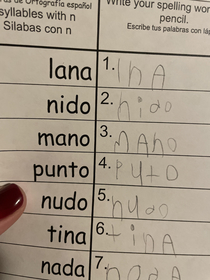 de Ortografía español
syllables with n
Silabas con n
Write your spelling wor
pencil.
Escribe tus palabras con láp
lana 1. lnA
nido 2. nido
mano 3. mAno
punto 4. PutO
nudo 5. nudo
tina 6. tinA
nada 7. nada